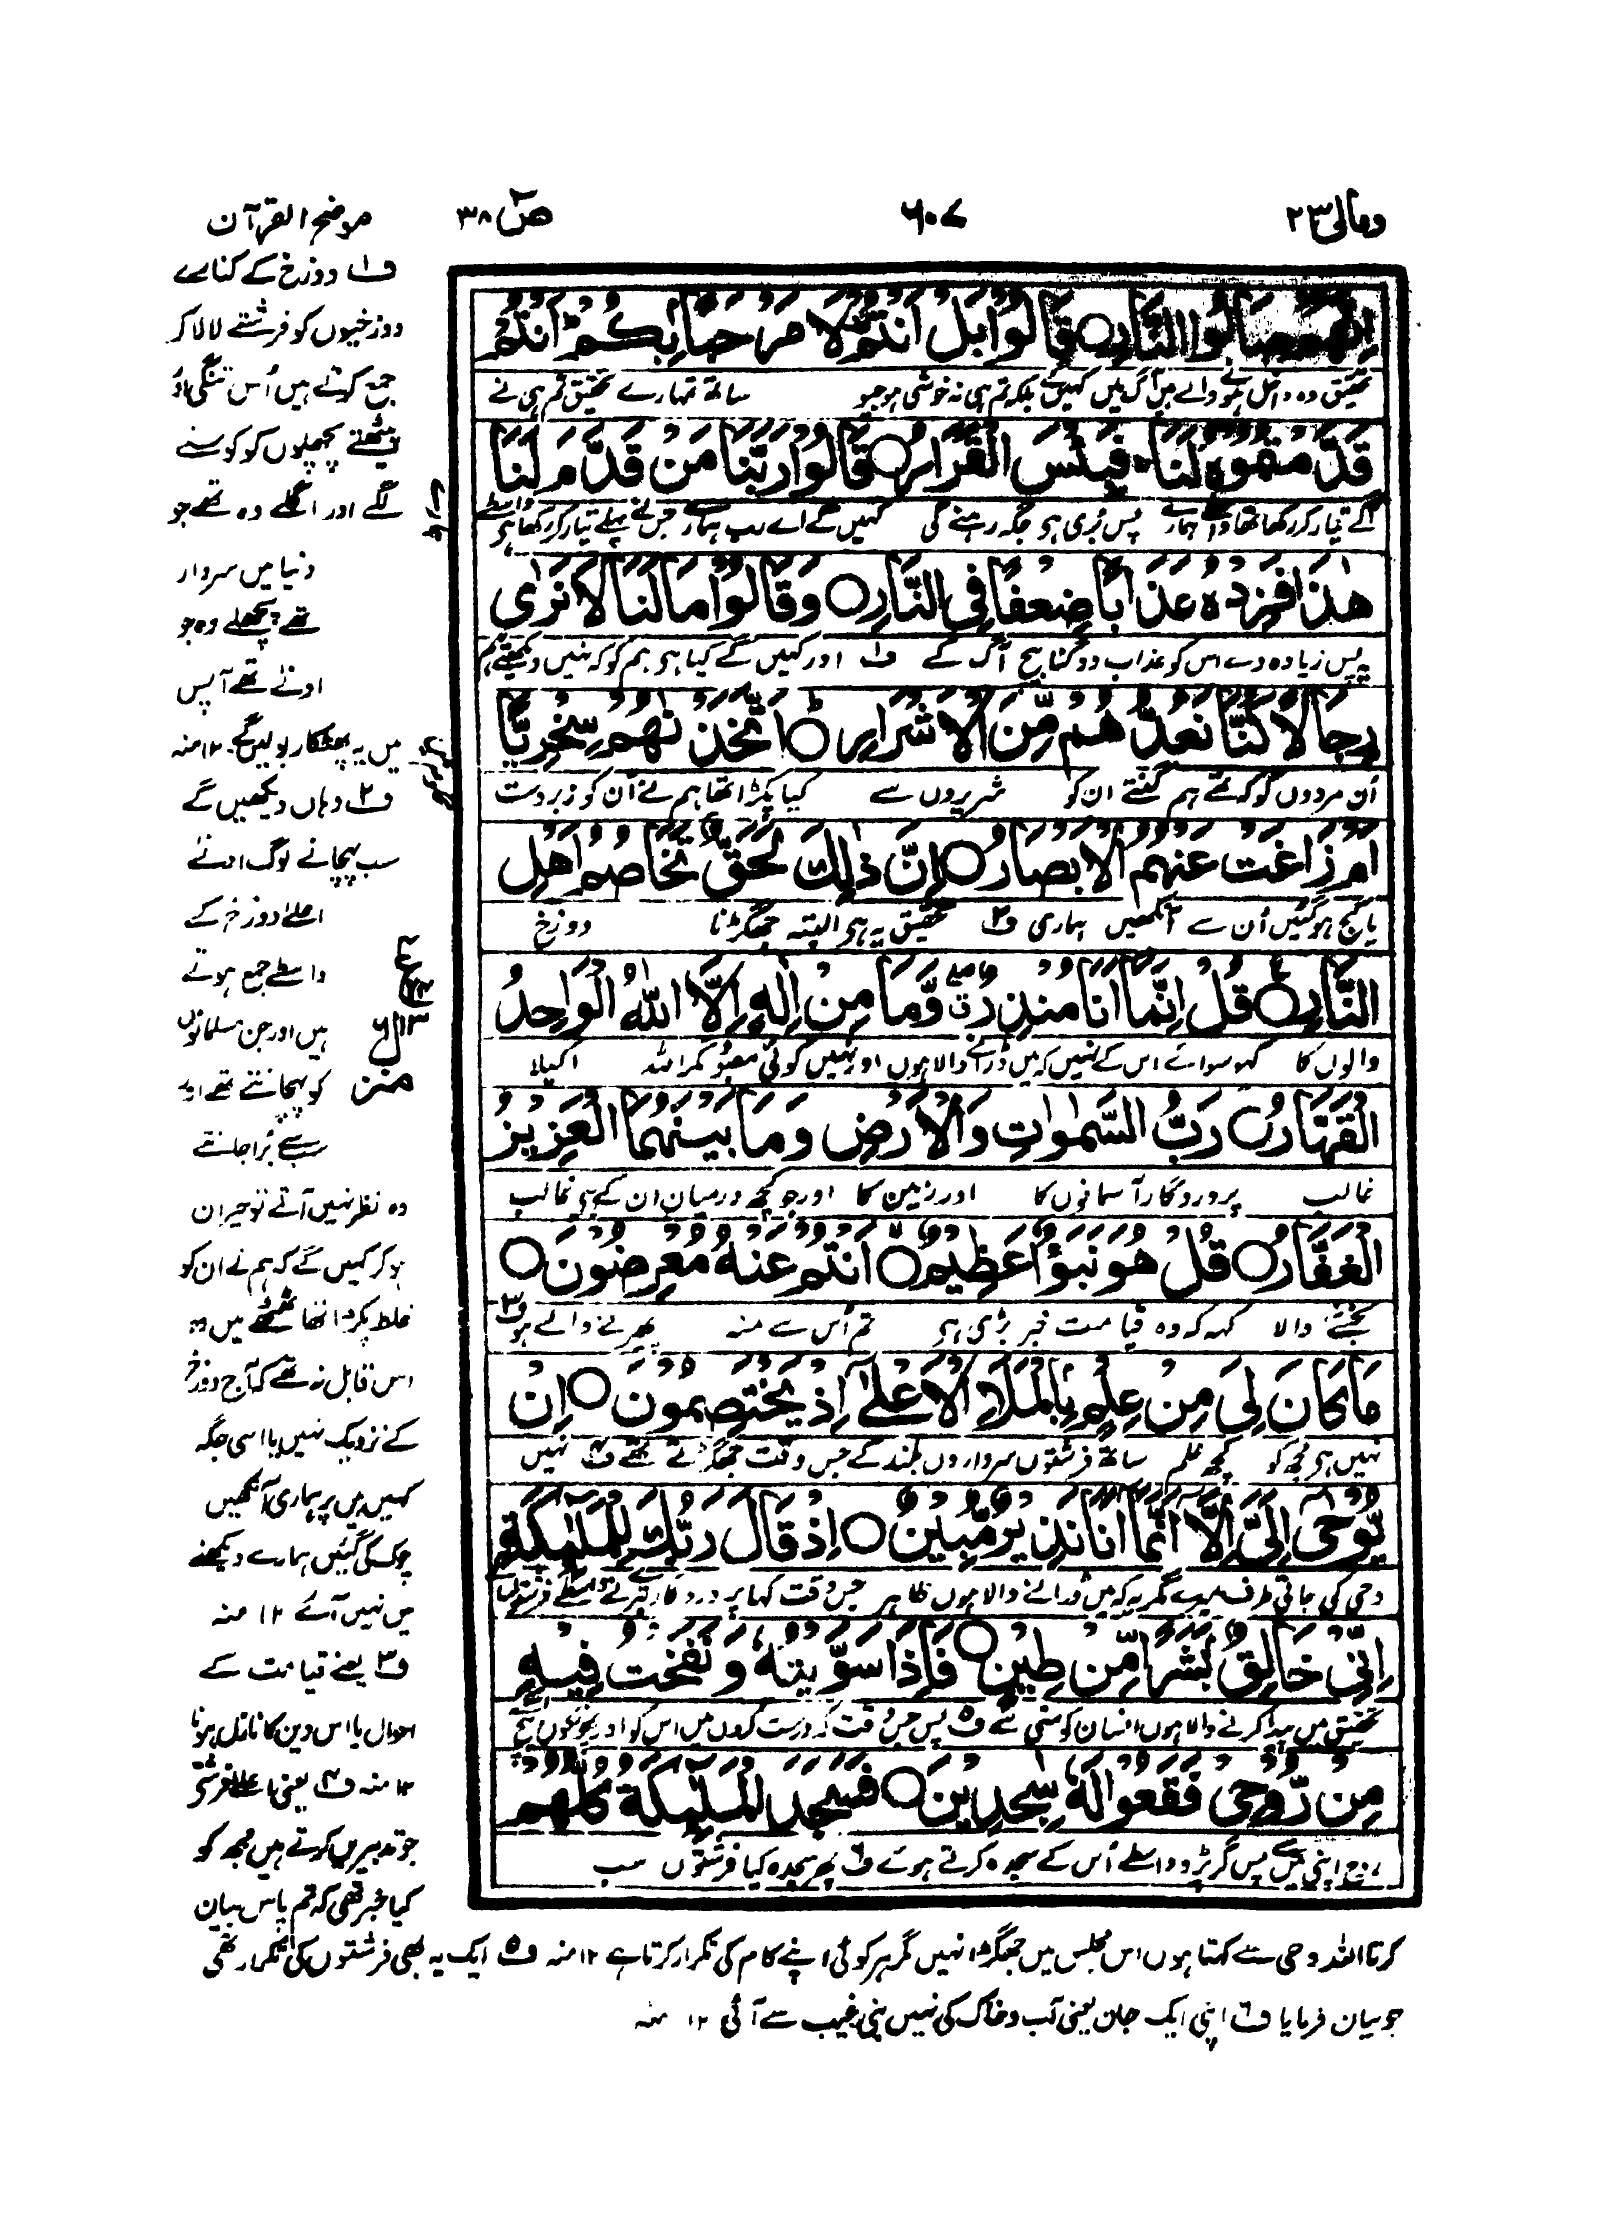 ومالی ۲۳
۶۰۷
ص ۳۸
اِنَّهُمْ صَالُوا النَّارِ ○ قَالُوْا بَلْ اَنْتُمْ لَا مَرْحَبًا بِكُمْ ط اَنْتُمْ
تحقیق وہ داخل ہونے والے ہیں آگ میں کہیں گے بلکہ تم ہی نہ خوشی ہوجیو ساتھ تمہارے تحقیق تم ہی نے
قَدَّمْتُمُوْهُ لَنَا ۚ فَبِئْسَ الْقَرَارُ ○ قَالُوْا رَبَّنَا مَنْ قَدَّمَ لَنَا
آگے تیار کر رکھا تھا واسطے ہمارے پس بُری ہی جگہ رہنے کی کہیں گے اے رب ہمارے جس نے پہلے تیار کر رکھا ہی واسطے
هٰذَا فَزِدْهُ عَذَابًا ضِعْفًا فِی النَّارِ ○ وَقَالُوْا مَا لَنَا لَا نَرٰی
یہ پس زیادہ دے اس کو عذاب دوگنا بیچ آگ کے ف۱ اور کہیں گے کیا ہی ہم کو کہ نہیں دیکھتے ہم
رِجَالًا كُنَّا نَعُدُّهُمْ مِّنَ الْاَشْرَارِ ○ اَتَّخَذْنٰهُمْ سِخْرِیًّا
اُن مردوں کو کہ تھے ہم گنتے ان کو شریروں سے کیا پکڑا تھا ہم نے اُن کو زبردست
اَمْ زَاغَتْ عَنْهُمُ الْاَبْصَارُ ○ اِنَّ ذٰلِكَ لَحَقٌّ تَخَاصُمُ اَهْلِ
یا کج ہوگئیں اُن سے آنکھیں ہماری ف۲ تحقیق یہ ہی البتہ جھگڑنا دوزخ
النَّارِ ○ قُلْ اِنَّمَا اَنَا مُنْذِرٌ وَّمَا مِنْ اِلٰهٍ اِلَّا اللّٰهُ الْوَاحِدُ
والوں کا کہہ سوائے اس کے نہیں کہ میں ڈرانے والا ہوں اور نہیں کوئی معبود مگر اللہ اکیلا
الْقَهَّارُ ○ رَبُّ السَّمٰوٰتِ وَالْاَرْضِ وَمَا بَیْنَهُمَا الْعَزِیْزُ
غالب پروردگار آسمانوں کا اور زمین کا اور جو کچھ درمیان ان کے ہی غالب
الْغَفَّارُ ○ قُلْ هُوَ نَبَؤٌا عَظِیْمٌ ○ اَنْتُمْ عَنْهُ مُعْرِضُوْنَ ○
بخشنے والا کہہ کہ وہ قیامت خبر بڑی ہی تم اُس سے منہ پھیرنے والے ہو ف۳
مَا كَانَ لِیَ مِنْ عِلْمٍ بِالْمَلَاِ الْاَعْلٰۤی اِذْ یَخْتَصِمُوْنَ ○ اِنْ
نہیں ہی مجھ کو کچھ علم ساتھ فرشتوں سرداروں بلند کے جس وقت جھگڑتے تھے ف۴ نہیں
یُّوْحٰۤی اِلَیَّ اِلَّاۤ اَنَّمَا اَنَا نَذِیْرٌ مُّبِیْنٌ ○ اِذْ قَالَ رَبُّكَ لِلْمَلٰٓىِٕكَةِ
وحی کی جاتی طرف میرے مگر یہ کہ میں ڈرانے والا ہوں ظاہر جس وقت کہا پروردگار تیرے نے واسطے فرشتوں
اِنِّیْ خَالِقٌ بَشَرًا مِّنْ طِیْنٍ ○ فَاِذَا سَوَّیْتُهٗ وَنَفَخْتُ فِیْهِ
تحقیق میں پیدا کرنے والا ہوں انسان کو مٹی سے ف۵ پس جس وقت کہ درست کروں میں اس کو اور پھونکوں بیچ
مِنْ رُّوْحِیْ فَقَعُوْا لَهٗ سٰجِدِیْنَ ○ فَسَجَدَ الْمَلٰٓىِٕكَةُ كُلُّهُمْ
روح اپنی پس گر پڑو واسطے اُس کے سجدہ کرتے ہوئے ف۶ پھر سجدہ کیا فرشتوں سب
موضح القرآن
ف۱ دوزخ کے کنارے
دوزخیوں کو فرشتے لا لا کر
جمع کرتے ہیں اُس تنگی
بیٹھتے پچھلوں کو کوسنے
لگے اور اگلے وہ تھے جو
دنیا میں سردار
تھے پچھلے وہ جو
ادنےٰ تھے آپس
میں یہ پھٹکار بولیں گے ۱۲ منہ
ف۲ وہاں دیکھیں گے
سب پہچانے لوگ ادنےٰ
اعلےٰ دوزخ کے
واسطے جمع ہوتے
ہیں اور جن مسلمانوں
کو پہچانتے تھے اور
سب سے بُرا جانتے
وہ نظر نہیں آتے تو حیران
ہو کر کہیں گے کہ ہم نے ان کو
غلط پکڑا تھا ٹھٹھے میں وہ
اس قابل نہ تھے کہ آج دوزخ
کے نزدیک نہیں یا اسی جگہ
کہیں ہیں پر ہماری آنکھیں
چوک گئیں ہمارے دیکھنے
میں نہیں آئے ۱۲ منہ
ف۳ یعنے قیامت کے
احوال یا اس دین کا نازل ہونا
۱۲ منہ ف۴ یعنی
جو تدبیریں کرتے ہیں مجھ کو
کیا خبر تھی کہ تم پاس بیان
کرتا اللہ وحی سے کہتا ہوں اس مجلس میں جھگڑا نہیں مگر ہر کوئی اپنے کام کی تکرار کرتا ہے ۱۲ منہ ف۵ ایک یہ بھی فرشتوں کی تکرار تھی
جو بیان فرمایا ف۶ اپنی ایک جان یعنی آب و خاک کی نہیں بنی غیب سے آئی ۱۲ منہ